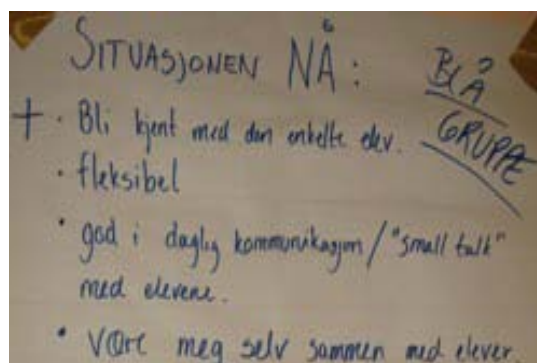 SITUASJONEN NÅ:
BLÅ
GRUPPE
+ • Bli kjent med den enkelte elev.
• fleksibel
• god i daglig kommunikasjon / "small talk"
med elevene.
• være meg selv sammen med elever.